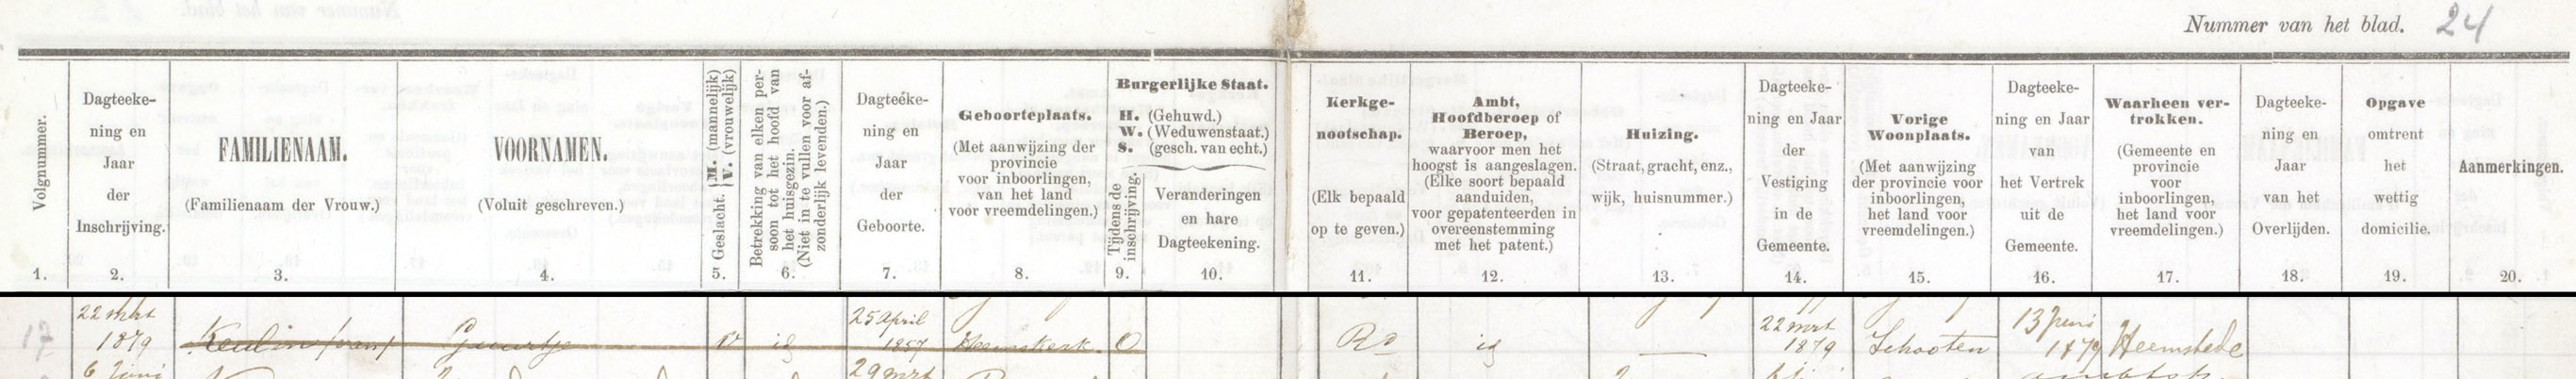 Nummer van het blad. 24
Volgnummer.
1.
Dagteeke-
ning en
Jaar
der
Inschrijving.
2.
FAMILIENAAM.
(Familienaam der Vrouw.)
3.
VOORNAMEN.
(Voluit geschreven.)
4.
Geslacht. { M. (mannelijk)
V. (vrouwelijk)
5.
Betrekking van elken per-
soon tot het hoofd van
het huisgezin.
(Niet in te vullen voor af-
zonderlijk levenden.)
6.
Dagteeke-
ning en
Jaar
der
Geboorte.
7.
Geboorteplaats.
(Met aanwijzing der
provincie
voor inboorlingen,
van het land
voor vreemdelingen.)
8.
Burgerlijke Staat.
H. (Gehuwd.)
W. (Weduwenstaat.)
S. (gesch. van echt.)
Tijdens de
inschrijving.
9.
Veranderingen
en hare
Dagteekening.
10.
Kerkge-
nootschap.
(Elk bepaald
op te geven.)
11.
Ambt,
Hoofdberoep of
Beroep,
waarvoor men het
hoogst is aangeslagen.
(Elke soort bepaald
aanduiden,
voor gepatenteerden in
overeenstemming
met het patent.)
12.
Huizing.
(Straat, gracht, enz.,
wijk, huisnummer.)
13.
Dagteeke-
ning en Jaar
der
Vestiging
in de
Gemeente.
14.
Vorige
Woonplaats.
(Met aanwijzing
der provincie voor
inboorlingen,
het land voor
vreemdelingen.)
15.
Dagteeke-
ning en Jaar
van
het Vertrek
uit de
Gemeente.
16.
Waarheen ver-
trokken.
(Gemeente en
provincie
voor
inboorlingen,
het land voor
vreemdelingen.)
17.
Dagteeke-
ning en
Jaar
van het
Overlijden.
18.
Opgave
omtrent
het
wettig
domicilie.
19.
Aanmerkingen.
20.
17
22 mrt
1879
Keulen (van)
Guurtje
V
id
25 april
1857
Heemskerk.
O
RC
id
—
22 mrt
1879
Schooten
13 juni
1879
Heemstede
6 Juni
29 mrt